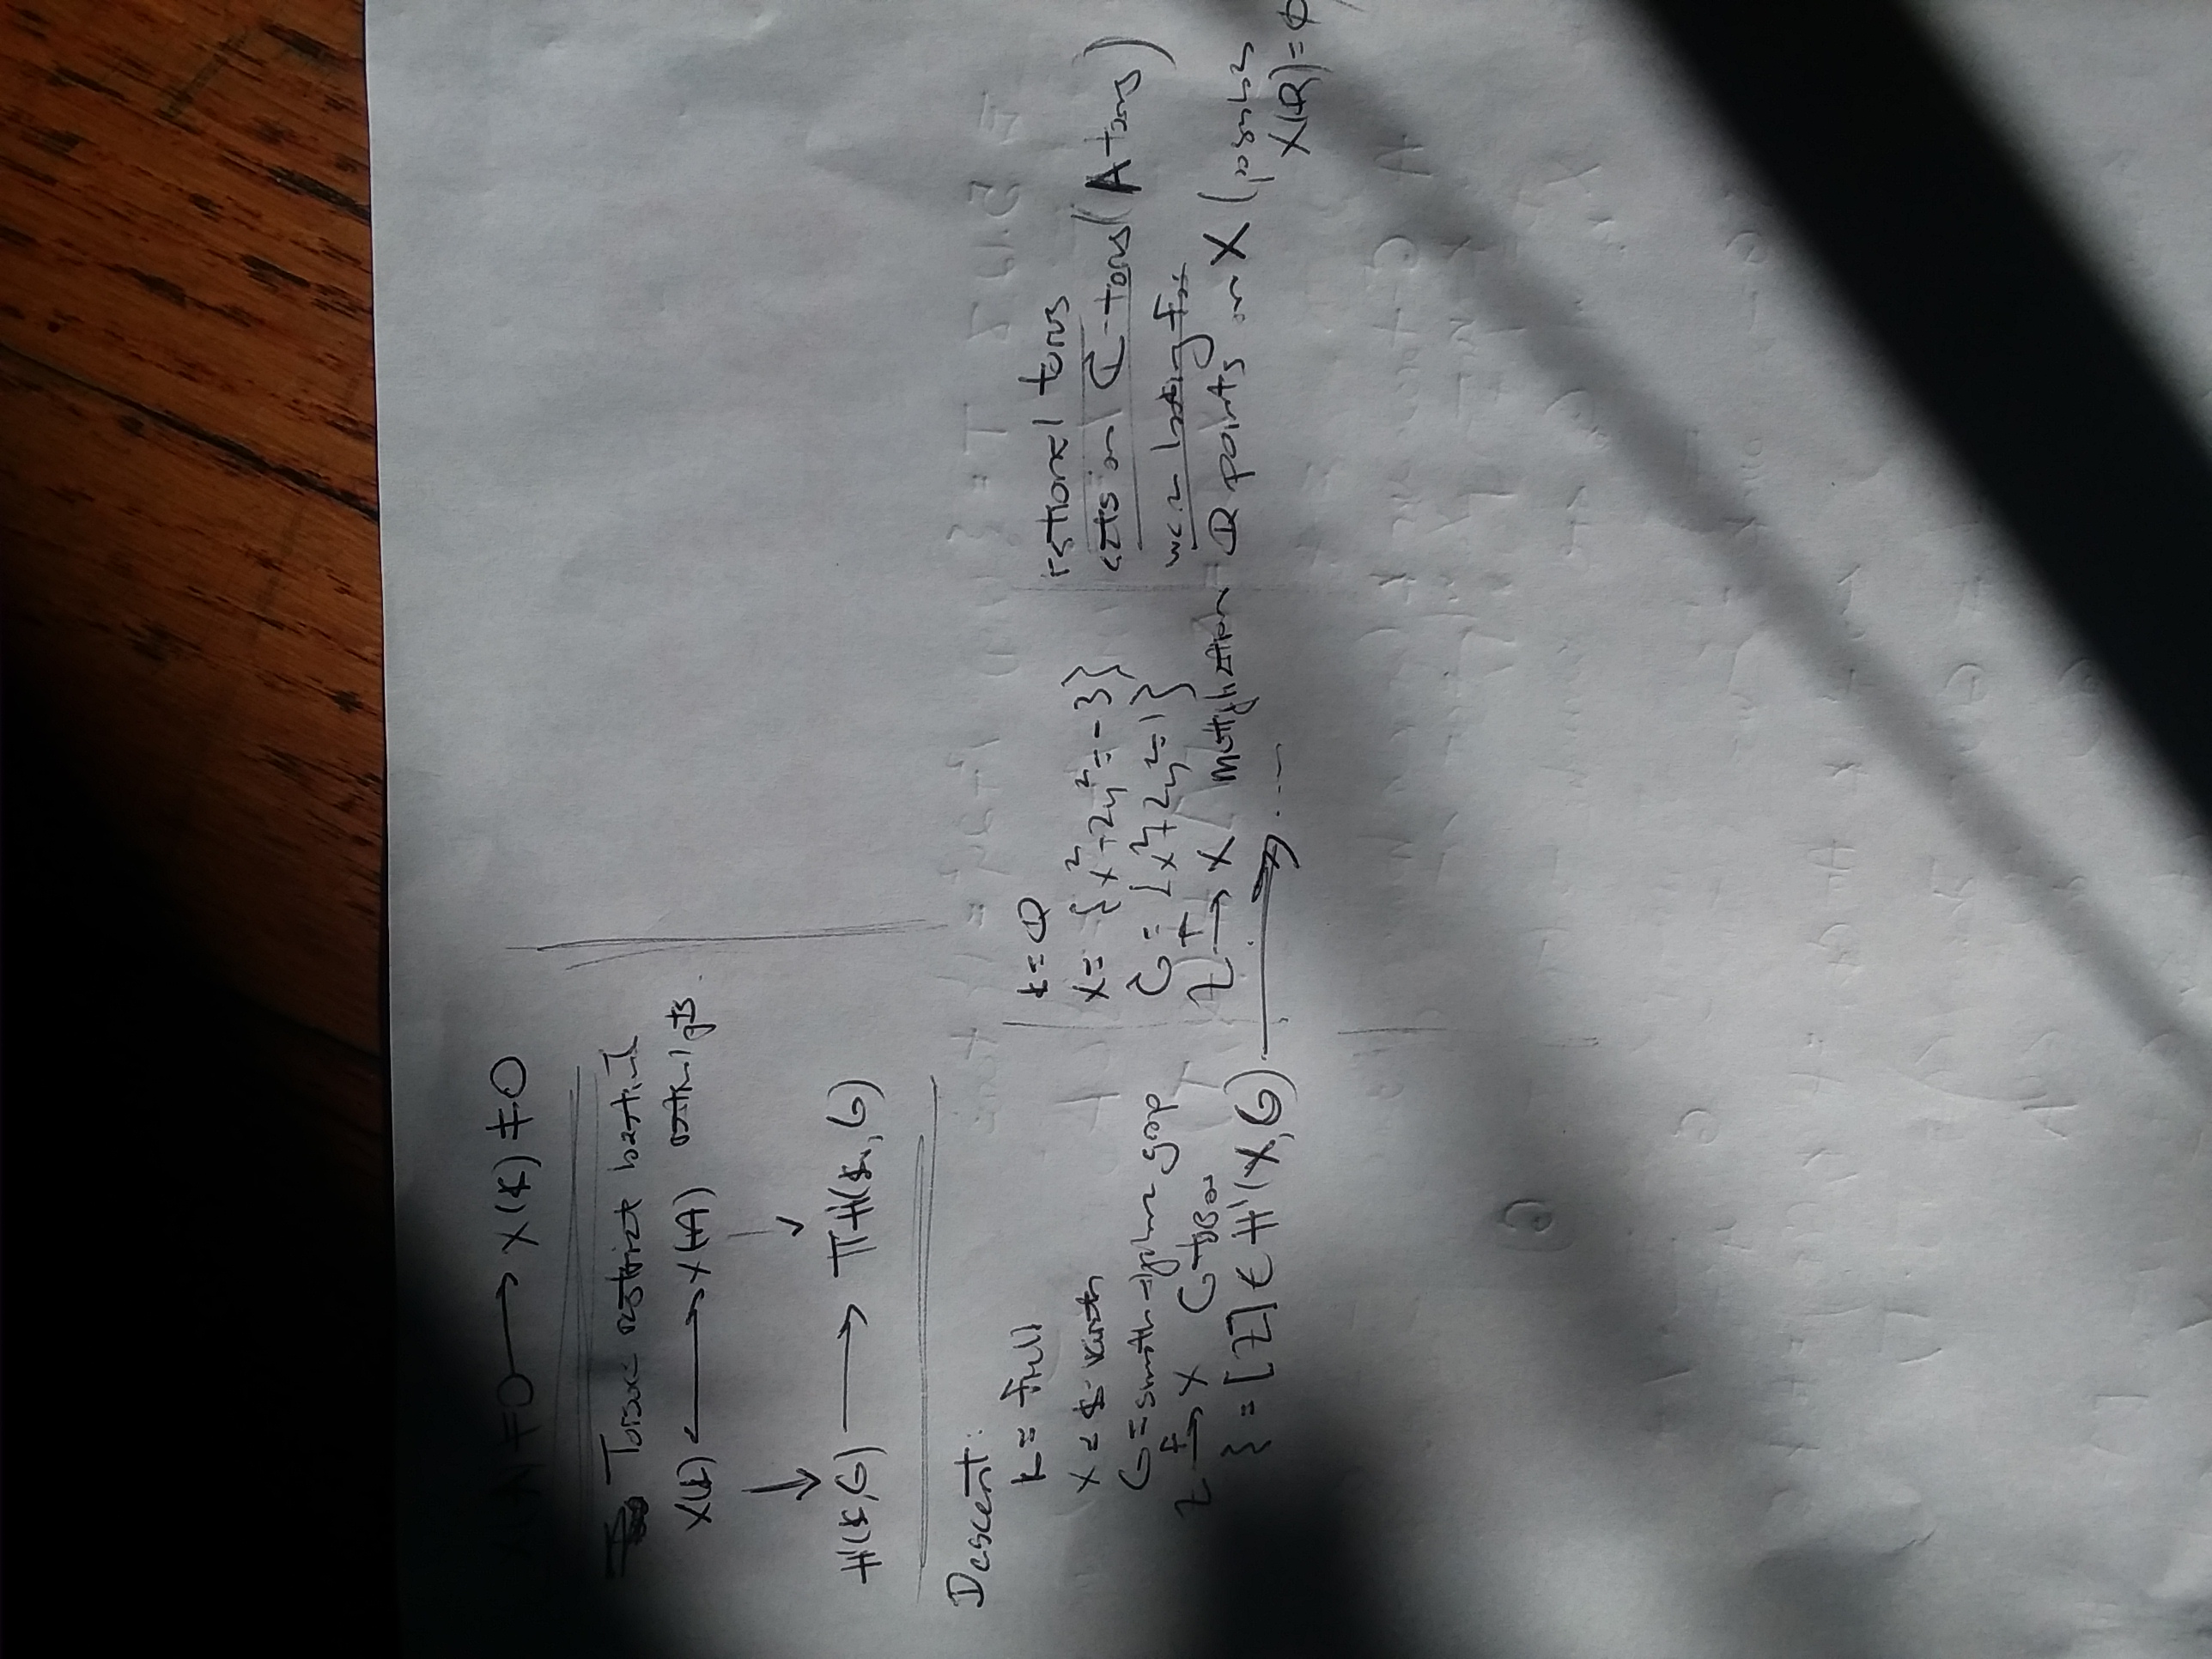 X(A) ≠ ∅ → X(k) ≠ ∅
Torsors restrict
X(k) ↔ X(A)
↓ ↓
H¹(k,G) → ΠH¹(kᵥ, G)
Descent:
k = field
X a k-variety
G = smooth algebraic group
Z →f X G-torsor
ξ = [Z] ∈ H¹(X,G) → ....
k = Q
X = {x² - 2y² = -3}
G = {x² + 2y² = 1}
Z →f X multiplication
rational torus
acts on C-torus (A torus)
we're looking for
Q points on X (possibly
X(Q) = ∅